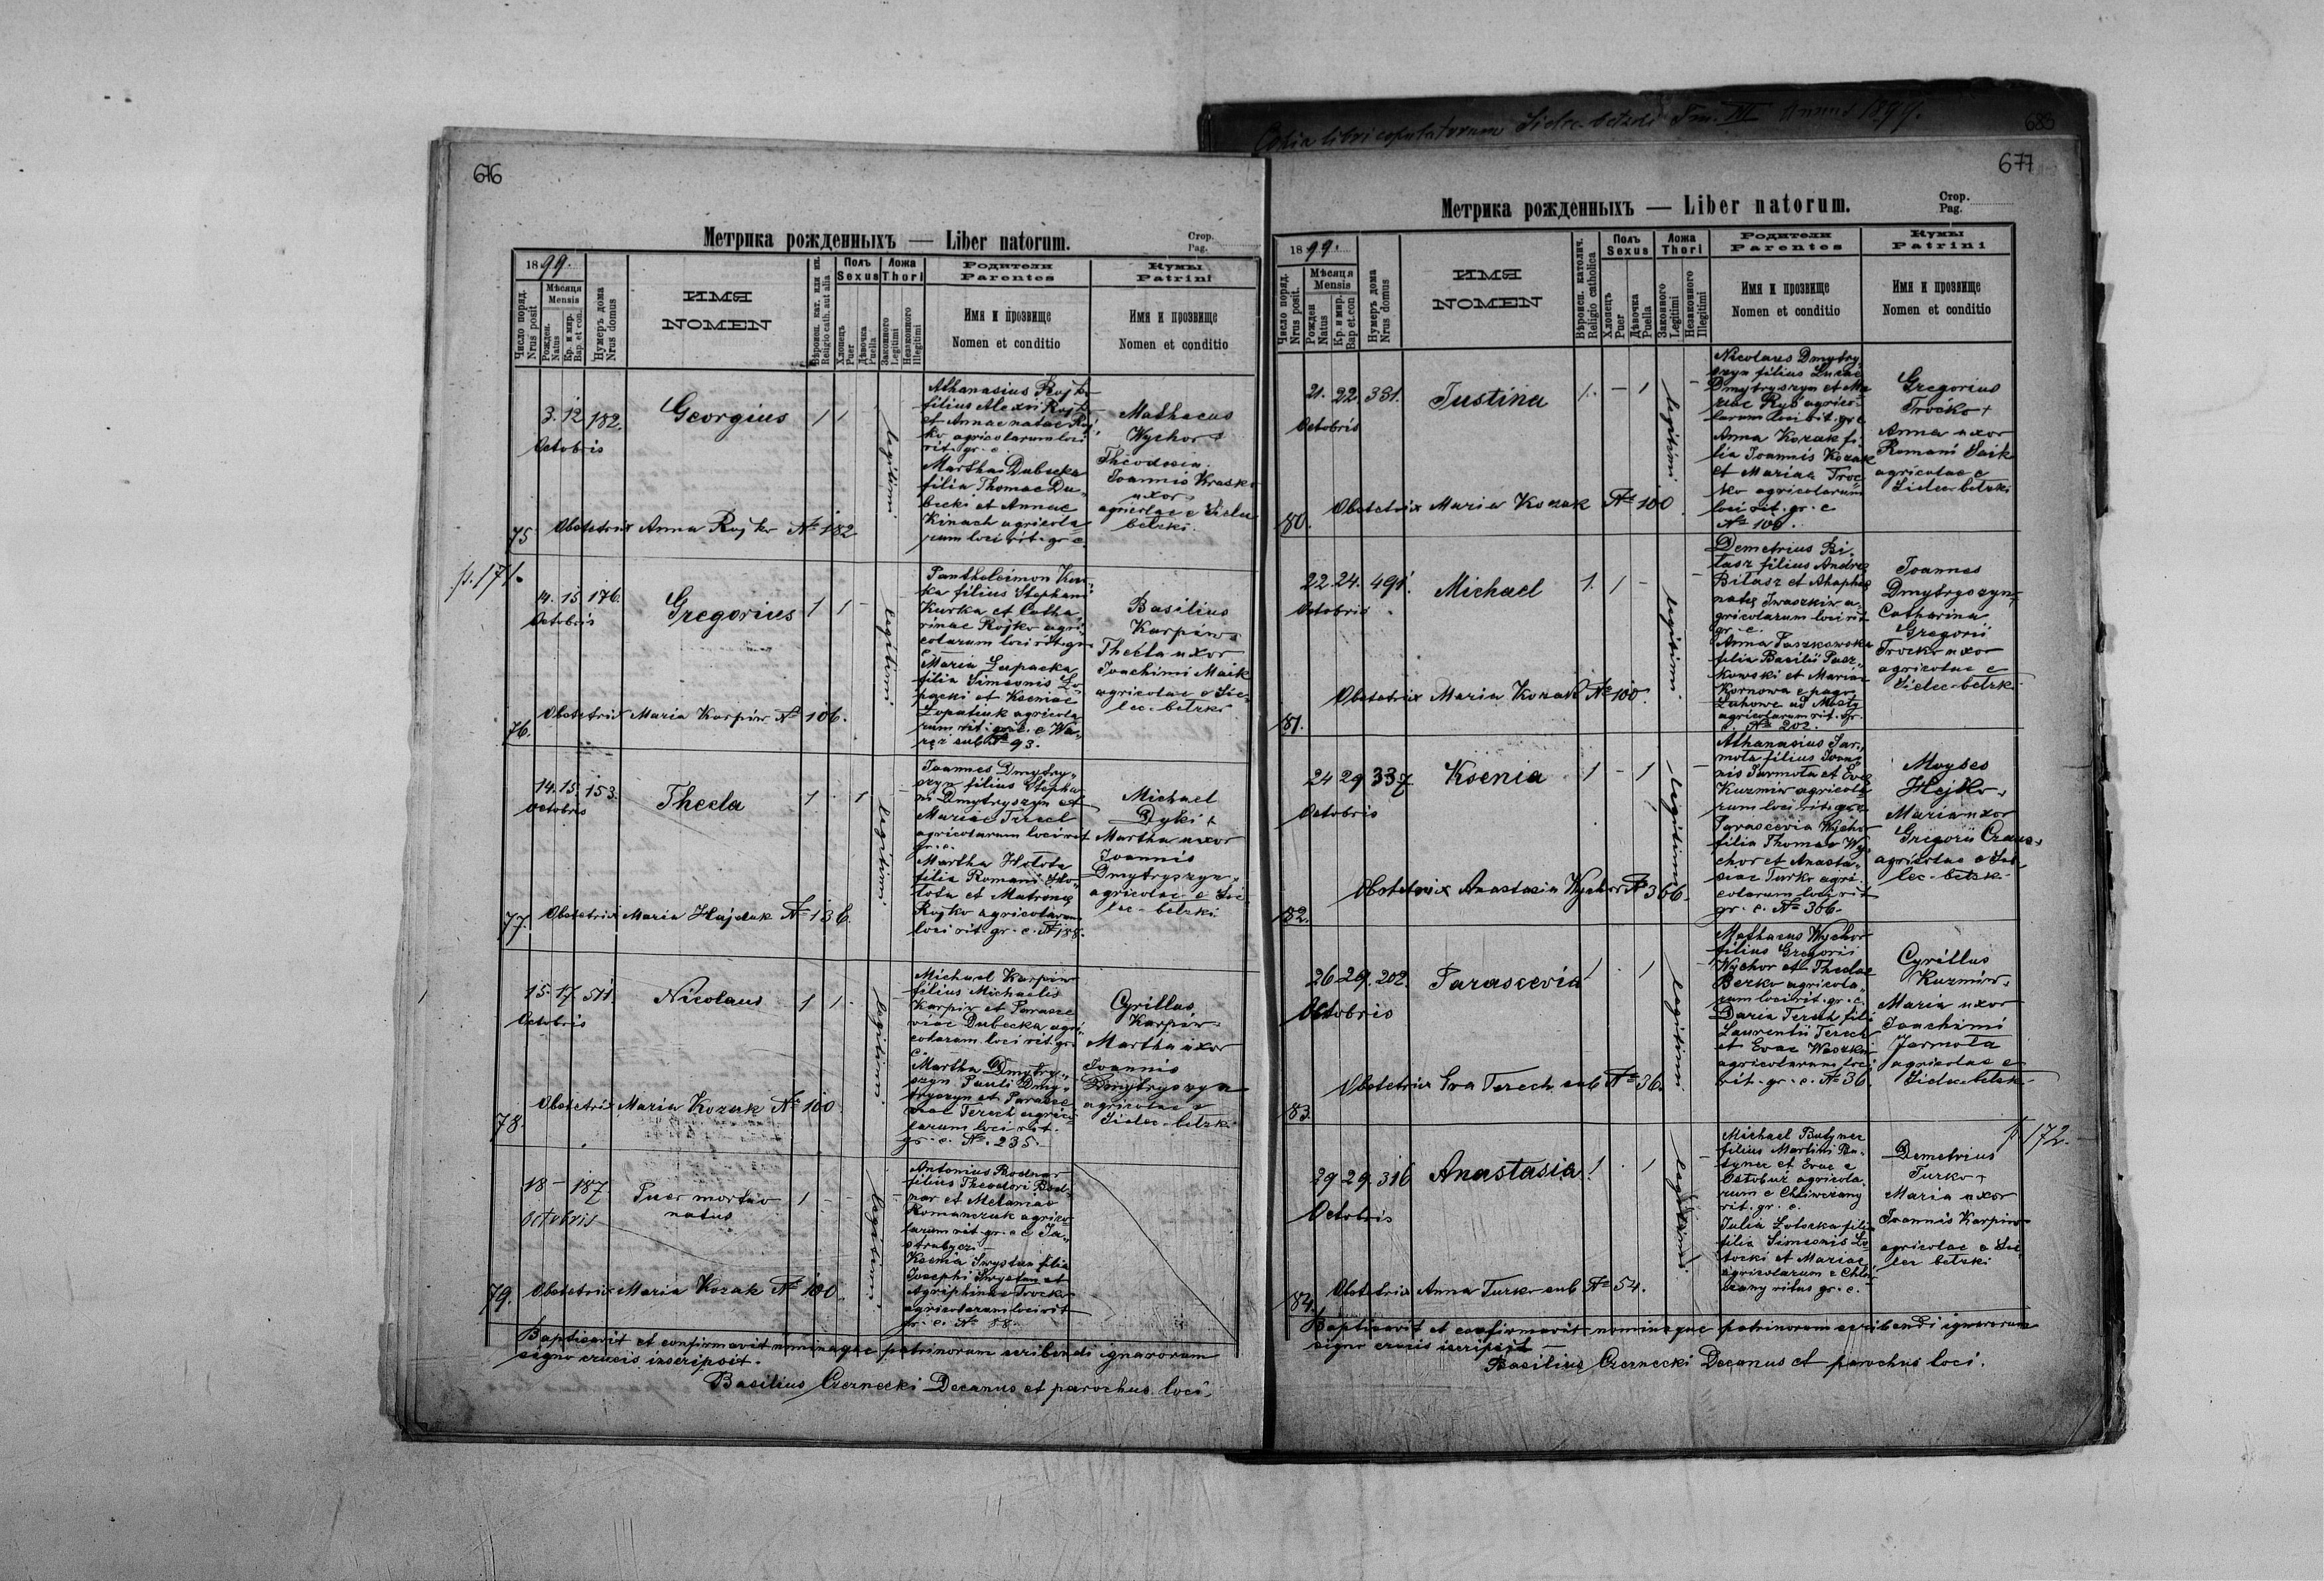 676
Метрика рожденныхъ — Liber natorum.
Стор.
Pag.
1899.
Число поряд.
Nrus posit
Мѣсяця
Mensis
Рожден.
Natus
Кр. и мир.
Bap. et con.
Нумеръ дома
Nrus domus
ИМЯ
NOMEN
Вѣроисп. кат. или ин.
Religio cath. aut alia
Полъ
Sexus
Хлопецъ
Puer
Дѣвочка
Puella
Ложа
Thori
Законного
Legitimi
Незаконного
Illegitimi
Родители
Parentes
Имя и прозвище
Nomen et conditio
Кумы
Patrini
Имя и прозвище
Nomen et conditio
75
3. 12 182.
Octobris
Georgius
1 1 -
legitimi
Athanasius Rojko
filius Alexii Rojko
et Annae natae Roj
ko agricolarum loci
rit. gr. c.
Martha Dubecka
filia Thomae Du„
becki et Annae
Kinach agricola
rum loci rit. gr. c.
Mathaeus
Wychor +
Theodosia
Joannis Krasko
uxor
agricolae e Sielec
betzki.
Obstetrix Anna Rojko № 182
p. 171.
76.
14. 15 176.
Octobris
Gregorius
1 1 -
legitimi
Pantholeimon Kur„
ka filius Stephani
Kurka et Catha
rinae Rojko agri„
colarum loci rit. gr.
c.
Maria Lopacka
filia Simeonis Lo„
packi et Kseniae
Lopatiuk agricola
rum rit. gr. c. e Wa„
ręż sub № 93.
Basilius
Karpiw +
Thecla uxor
Joachimi Maik
agricolae e Sie„
lec-betzki
Obstetrix Maria Karpiw № 106.
77.
14. 15. 153.
Octobris
Thecla
1 · 1
legitimi
Joannes Dmytry„
szyn filius Stepha
ni Dmytryszyn et
Mariae Terech
agricolarum loci rit
gr. c.
Martha Hołota
filia Romani Ho„
łota et Matronae
Rojko agricolarum
loci rit. gr. c. № 188.
Michael
Dyki +
Martha uxor
Joannis
Dmytryszyn +
agricolae e Sie„
lec-betzki
Obstetrix Maria Hajduk № 136.
78.
15. 17. 511
Octobris
Nicolaus
1 1 ·
legitimi
Michael Karpiw
filius Michaelis
Karpiw et Parasce
viae Dubecka agri„
colarum loci rit. gr.
c.
Martha Dmytry„
szyn Pauli Dmy„
tryszyn et Parasce
viae Terech agrico
larum loci rit.
gr. c. № 235.
Cyrillus
Karpiw +
Martha uxor
Joannis
Dmytryszyn
agricolae e
Sielec-betzki
Obstetrix Maria Kozak № 100
79.
18 — 187
Octobris
Puer mortuo
natus
1 - -
legitimi
Antonius Bodnar
filius Theodori Bod„
nar et Melaniae
Romanczuk agrico
larum rit. gr. c. e Ja„
strubyczi
Ksenia Swystun filia
Josephi Swystun et
Agriphinae Trocko
agricolarum loci rit
gr. c. № 88.
Obstetrix Maria Kozak № 100
Baptisavit et confirmavit nominaque patrinorum scribendi ignarorum
signo crucis inscripsit.
Basilius Czernecki Decanus et parochus loci.
Copia libri copulatorum Sielec betzki Tm. III Annus 1899.
683
677
Метрика рожденныхъ — Liber natorum.
Стор.
Pag.
1899.
Число поряд.
Nrus posit.
Мѣсяця
Mensis
Рожден
Natus
Кр. и мир.
Bap. et.con
Нумеръ дома
Nrus domus
ИМЯ
NOMEN
Вѣроисп. католич.
Religio catholica
Полъ
Sexus
Хлопецъ
Puer
Дѣвочка
Puella
Ложа
Thori
Законного
Legitimi
Незаконного
Illegitimi
Родители
Parentes
Имя и прозвище
Nomen et conditio
Кумы
Patrini
Имя и прозвище
Nomen et conditio
80.
21. 22. 331.
Octobris
Justina
1. — 1
legitimi
Nicolaus Dmytry
szyn filius Lucae
Dmytryszyn et Ma
riae Ryś agrico„
larum loci rit. gr. c
Anna Kozak fi„
lia Joannis Kozak
et Mariae Troc„
ko agricolarum
loci rit. gr. c
№ 100.
Gregorius
Trocko +
Anna uxor
Romani Saik
agricolae e
Sielec-betzki
Obstetrix Maria Kozak № 100
81.
22. 24. 491.
Octobris
Michael
1. 1 -
legitimi
Demetrius Bi„
łasz filius Andreae
Biłasz et Ahaphiae
natae Iwaszkiw a„
gricolarum loci rit
gr. c.
Anna Paszkowska
filia Basilii Pasz„
kowski et Mariae
Kornowa e pago
agricolarum rit. gr.
c. № 202.
Joannes
Dmytryszyn +
Catharina
Gregorii
Trocko uxor
agricolae e
Sielec-betzki
Obstetrix Maria Kozak № 100.
82.
24 29 337
Octobris
Ksenia
1 - 1
legitimi
Athanasius Jar„
mota filius Joan„
nis Jarmota et Evae
Kuzmiw agricola
rum loci rit. gr. c.
Parascevia Wychor
filia Thomae Wy„
chor et Anasta„
siae Turko agri„
colarum loci rit
gr. c. № 366.
Moyses
Hejko +
Maria uxor
Gregorii
agricolae e Sie„
lec-betzk
Obstetrix Anastasia Wychor № 366.
83.
26 29. 202.
Octobris
Parascevia
1 · 1
legitimi
Mathaeus Wychor
filius Gregorii
Wychor et Theclae
Berko agricola„
rum loci rit. gr. c.
Daria Terech filia
Laurentii Terech
et Evae Waszkiw
agricolarum loci
rit. gr. c. № 36
Cyrillus
Kuzmiw +
Maria uxor
Joachimi
Jarmota
agricolae e
Sielec-betzk
Obstetrix Eva Terech sub № 36.
p 172.
84.
29 29. 316
Octobris
Anastasia
1 · 1
legitimi
Michael Butyner
filius Martini Bu„
tyner et Evae e
Ostobuz agricola„
rum e Chliwczany
rit. gr. c.
Julia Łotocka filia
filia Simeonis Ło
tocki et Mariae
agricolarum e Chliw
czany ritus gr. c.
Demetrius
Turko +
Maria uxor
Joannis Karpiw
agricolae e Sie„
lec betzki
Obstetrix Anna Turko sub № 54.
Baptisavit et confirmavit nominaque patrinorum scribendi ignarorum
signo crucis iscripsit
Basilius Czernecki Decanus et parochus loci.